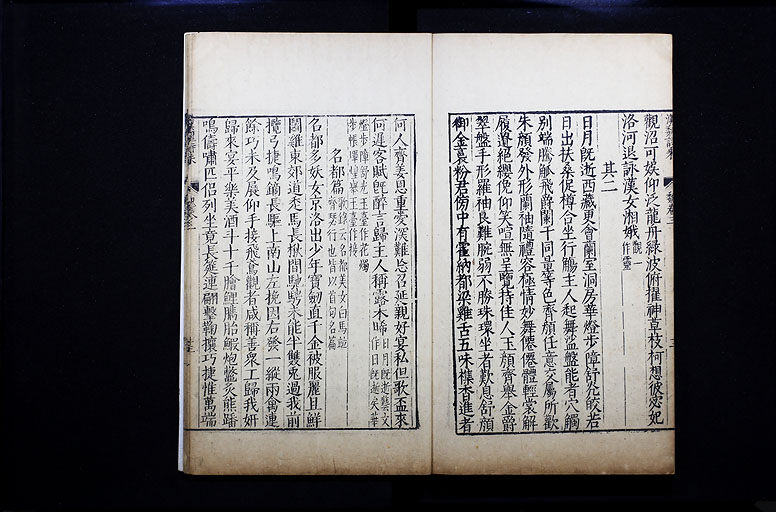 觀沼可娛仰泛龍舟綠波俯擢神草枝柯想彼宓妃
洛河退詠漢女湘娥觀一作靈
其二
日月既逝西藏更會蘭室洞房華燈步障舒光皎若
日出扶桑促樽合坐行觴主人起舞娑盤能者穴觸
別端騰觚飛爵闌干同量等色齊顏任意交屬所歡
朱顏發外形蘭袖隨禮容極情妙舞僊僊體輕裳解
履遺絕纓俛仰笑喧無呈覽持佳人玉顏齊舉金爵
翠盤手形羅袖良難腕弱不勝珠環坐者歎息舒顏
御金裛粉君傍中有霍納都梁雞舌五味雜香進者
何人齊姜恩重愛深難忘召延親好宴私但歌盃來
何遲客賦既醉言歸主人稱露未晞
名都篇
名都多妖女京洛出少年寶劒直千金被服麗且鮮
鬬雞東郊道走馬長楸間馳騁未能半雙兔過我前
攬弓捷鳴鏑長驅上南山左挽因右發一縱兩禽連
餘巧未及展仰手接飛鳶觀者咸稱善衆工歸我妍
歸來宴平樂美酒斗十千膾鯉臇胎鰕炮鱉炙熊蹯
鳴儔嘯匹侶列坐竟長筵連翩擊鞠壤巧捷惟萬端